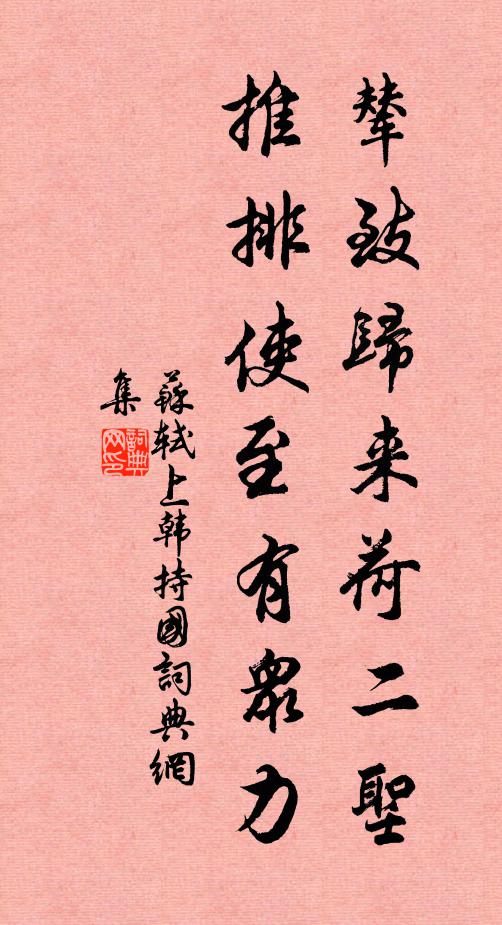 輦致歸来荷二聖
推排使至有衆力
蘇軾上韩持國詞典網
集
詞典
网印